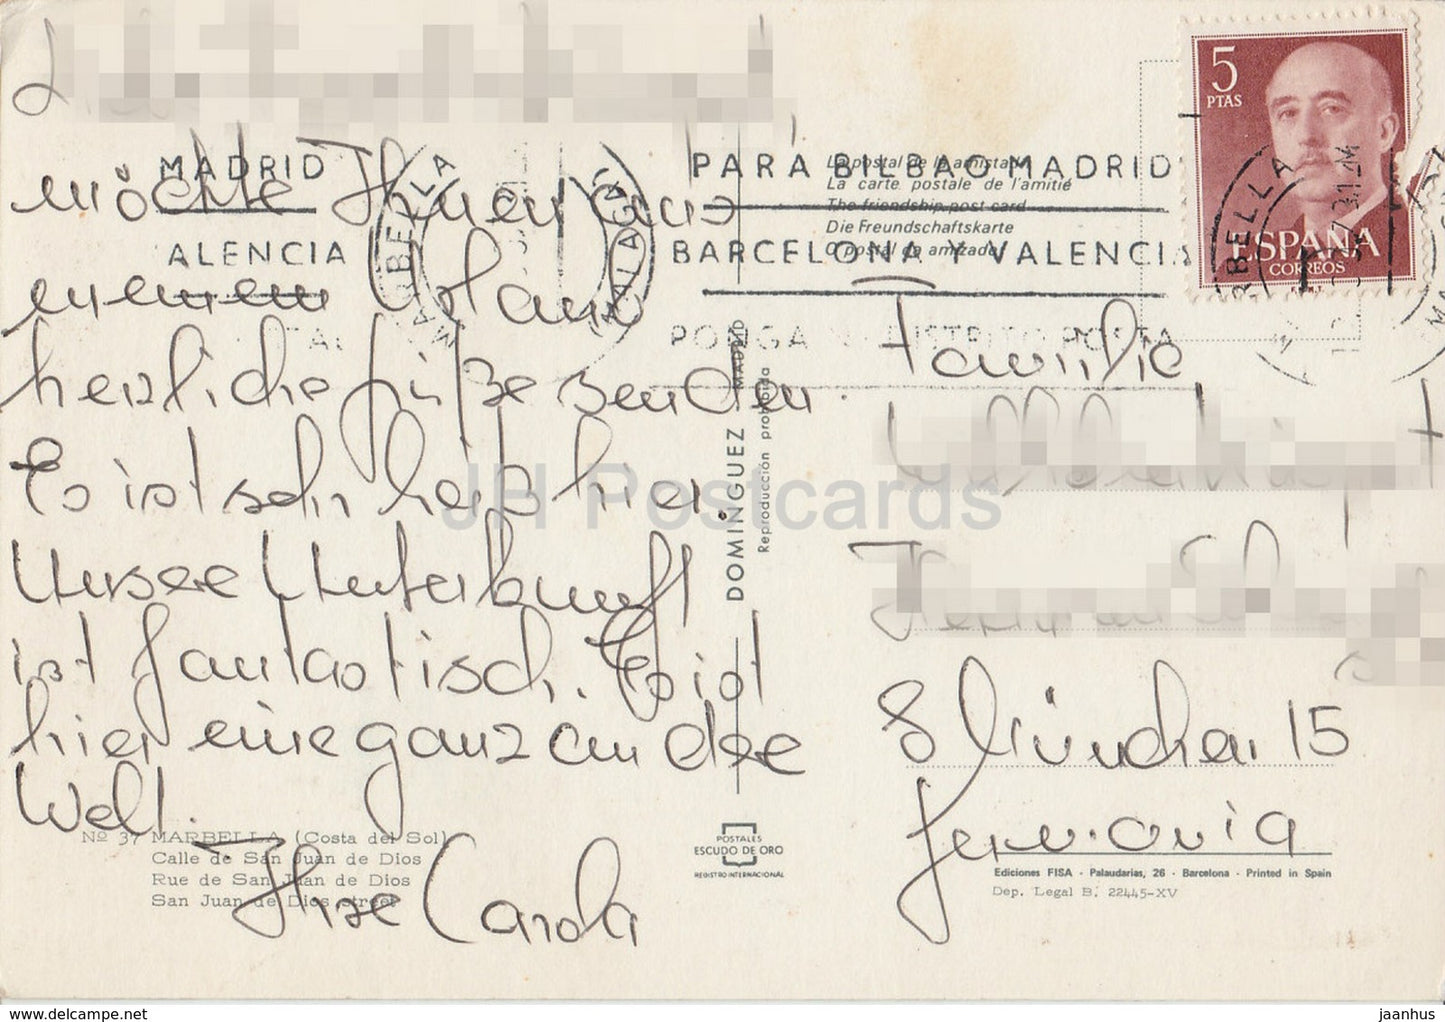 möchte Ihnen aus
herzliche Grüße senden.
Es ist sehr heiß hier.
Unsere Unterkunft
ist fantastisch. Es ist
hier eine ganz andere
Welt.
Ihre Carola
MADRID
ALENCIA
MARBELLA
MALAGA
PARA BILBAO MADRID
BARCELONA Y VALENCIA
PONGA DISTRITO POSTAL
La postal de la amistad
La carte postale de l'amitié
The friendship post card
Die Freundschaftskarte
O postal da amizade
5
PTAS
ESPAÑA
CORREOS
Familie
8 München 15
Germania
DOMINGUEZ MADRID
Reproducción prohibida
Nº 37 MARBELLA (Costa del Sol)
Calle de San Juan de Dios
Rue de San Juan de Dios
San Juan de Dios street
POSTALES
ESCUDO DE ORO
REGISTRO INTERNACIONAL
Ediciones FISA - Palaudarias, 26 - Barcelona - Printed in Spain
Dep. Legal B. 22445-XV
JH Postcards
https://www.delcampe.net
jaanhus